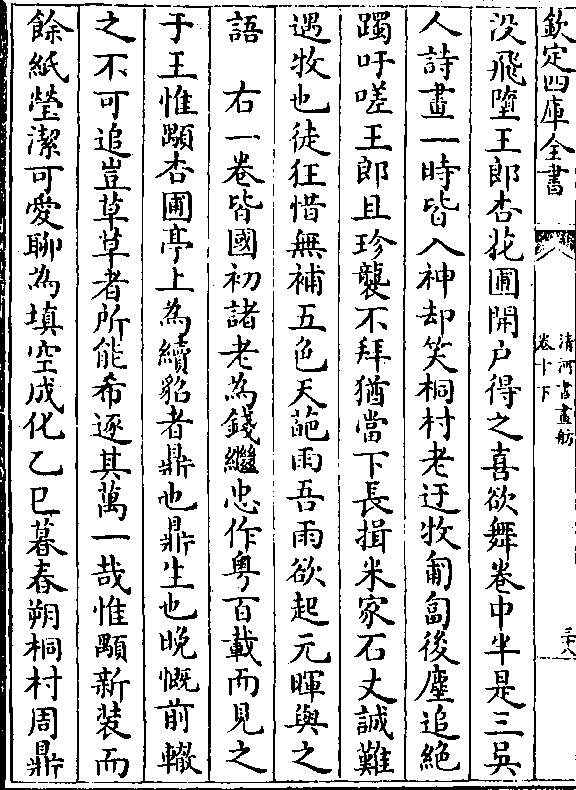 欽定四庫全書
清河書畫舫
卷十下
三十八
没飛墮王郎杏花圃開户得之喜欲舞卷中半是三吳
人詩畫一時皆入神却笑桐村老迂牧匍匐後塵追絶
躅吁嗟王郎且珍襲不拜猶當下長揖米家石丈誠難
遇牧也徒狂惜無補五色天葩雨吾雨欲起元暉與之
語　右一卷皆國初諸老為錢繼忠作粤百載而見之
于王惟顒杏圃亭上為續貂者鼎也鼎生也晚慨前轍
之不可追豈草草者所能希逐其萬一哉惟顒新装而
餘紙瑩潔可愛聊為填空成化乙巳暮春朔桐村周鼎